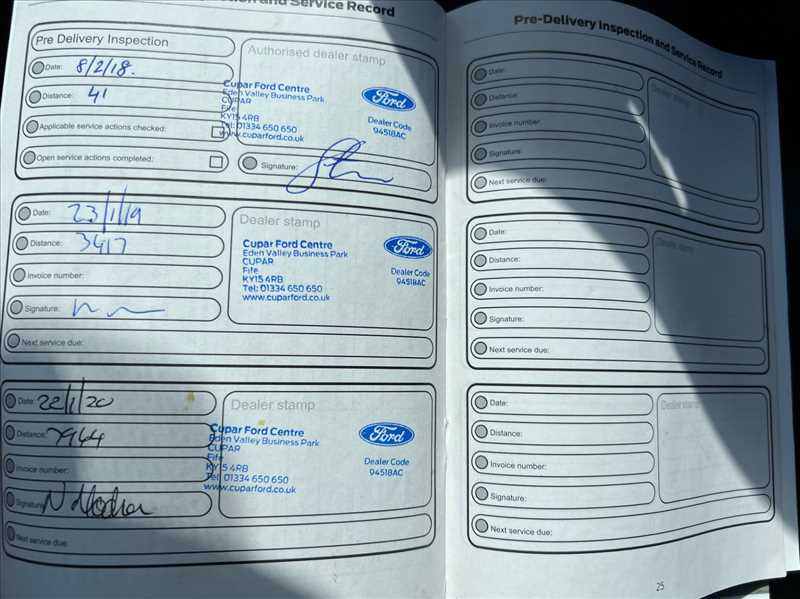 ction and Service Record
Pre Delivery Inspection
Date: 8/2/18.
Distance: 41
Applicable service actions checked:
Open service actions completed:
Authorised dealer stamp
Cupar Ford Centre
Eden Valley Business Park
CUPAR
Fife
KY15 4RB
Tel: 01334 650 650
www.cuparford.co.uk
Ford
Dealer Code
94518AC
Signature:
Date: 23/1/19
Distance: 3417
Invoice number:
Signature:
Next service due:
Dealer stamp
Cupar Ford Centre
Eden Valley Business Park
CUPAR
Fife
KY15 4RB
Tel: 01334 650 650
www.cuparford.co.uk
Ford
Dealer Code
94518AC
Date: 22/1/20
Distance: 7944
Invoice number:
Signature:
Next service due:
Dealer stamp
Cupar Ford Centre
Eden Valley Business Park
CUPAR
Fife
KY15 4RB
Tel: 01334 650 650
www.cuparford.co.uk
Ford
Dealer Code
94518AC
Pre-Delivery Inspection and Service Record
Date:
Distance:
Invoice number:
Signature:
Next service due:
Dealer stamp
Date:
Distance:
Invoice number:
Signature:
Next service due:
Dealer stamp
Date:
Distance:
Invoice number:
Signature:
Next service due:
Dealer stamp
25